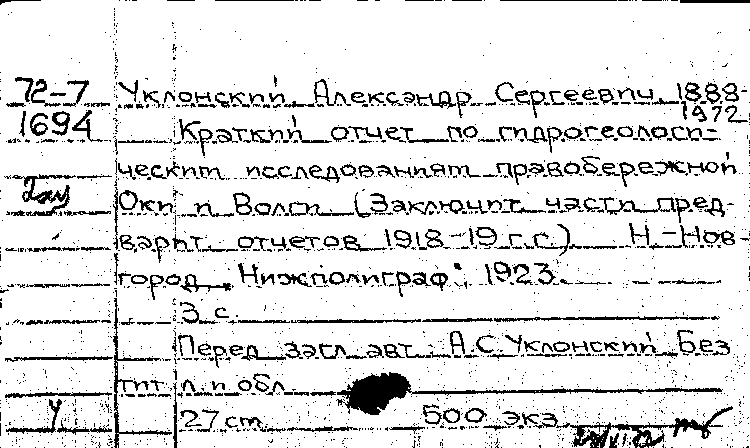 72-7 Уклонский, Александр Сергеевич, 1888-
1972
1694 Краткий отчет по гидрогеологи-
ческим исследованиям правобережной
2экз
Оки и Волги (Заключит. части пред-
варит. отчетов 1918-19 г.г.) Н.-Нов-
город, „Нижполиграф", 1923.
3 с.
Перед загл. авт.: А.С. Уклонский. Без
тит. л. и обл.
27 см. 500 экз.